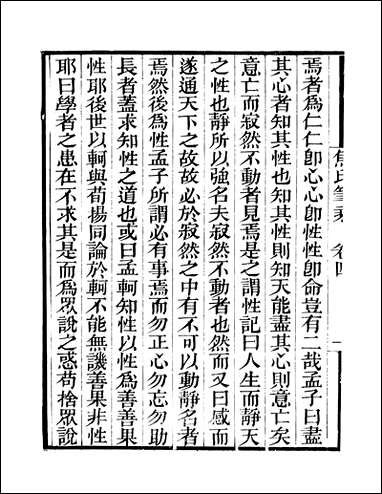 焉者為仁仁卽心心卽性性卽命豈有二哉孟子曰盡
其心者知其性也知其性則知天能盡其心則意亡矣
意亡而寂然不動者見焉是之謂性記曰人生而靜天
之性也靜所以強名夫寂然不動者也然而又曰感而
遂通天下之故故必於寂然之中有不可以動靜名者
焉然後為性孟子所謂必有事焉而勿正心勿忘勿助
長者蓋求知性之道也或曰孟軻知性以性為善善果
性耶後世以軻與荀揚同論於軻不能無譏善果非性
耶曰學者之患在不求其是而為眾說之惑苟捨眾說
焦氏筆乘 卷四 一